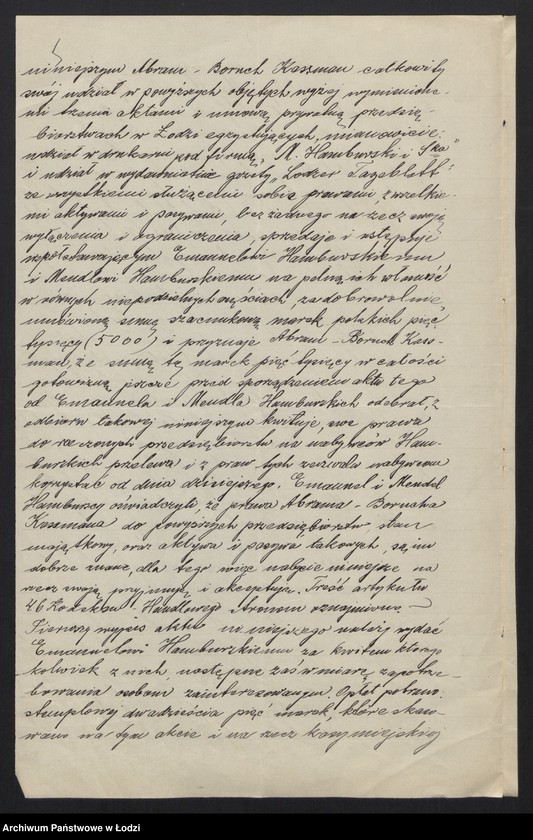 niniejszym Abram - Boruch Kassman całkowity
swój udział w powyższych objętych wyżej wymienione-
mi trzema aktami i umową prywatną przedsię-
biorstwach w Łodzi egzystujących, mianowicie:
udział w drukarni pod firmą „M. Hamburski i S-ka"
i udział w wydawnictwie gazety „Lodzer Tageblatt"
ze wszystkiemi służącemi sobie prawami, z wszelkie-
mi aktywami i pasywami, bez żadnego na rzecz swoją
wyłączenia i ograniczenia, sprzedaje i ustępuje
współstawającym Emanuelowi Hamburskiemu
i Mendlowi Hamburskiemu na pełną ich własność
w równych niepodzielnych częściach, za dobrowolnie
umówioną sumę szacunkową marek polskich pięć
tysięcy (5000) i przyznaje Abram - Boruch Kass-
man, że sumę tę marek pięć tysięcy w całości
gotowizną jeszcze przed sporządzeniem aktu tego
od Emanuela i Mendla Hamburskich odebrał, z
odbioru takowej niniejszym kwituje, swe prawa
do rzeczonych przedsiębiorstw na nabywców Ham-
burskich przelewa i z praw tych zezwala nabywcom
korzystać od dnia dzisiejszego. Emanuel i Mendel
Hamburscy oświadczyli, że prawa Abrama - Borucha
Kassmana do powyższych przedsiębiorstw, stan
majątkowy, oraz aktywa i pasywa takowych, są im
dobrze znane, dla tego więc nabycie niniejsze na
rzecz swoją przyjmują i akceptują. Treść artykułu
46 Kodeksu Handlowego stronom oznajmiono. —
Pierwszy wypis aktu niniejszego należy wydać
Emanuelowi Hamburskiemu za kwitem któregо
kolwiek z nich, następne zaś w miarę zapotrze-
bowania osobom zainteresowanym. Opłat pobrano:
stemplowej dwadzieścia pięć marek, które skaso-
wano na tym akcie i na rzecz kasy miejskiej
Archiwum Państwowe w Łodzi